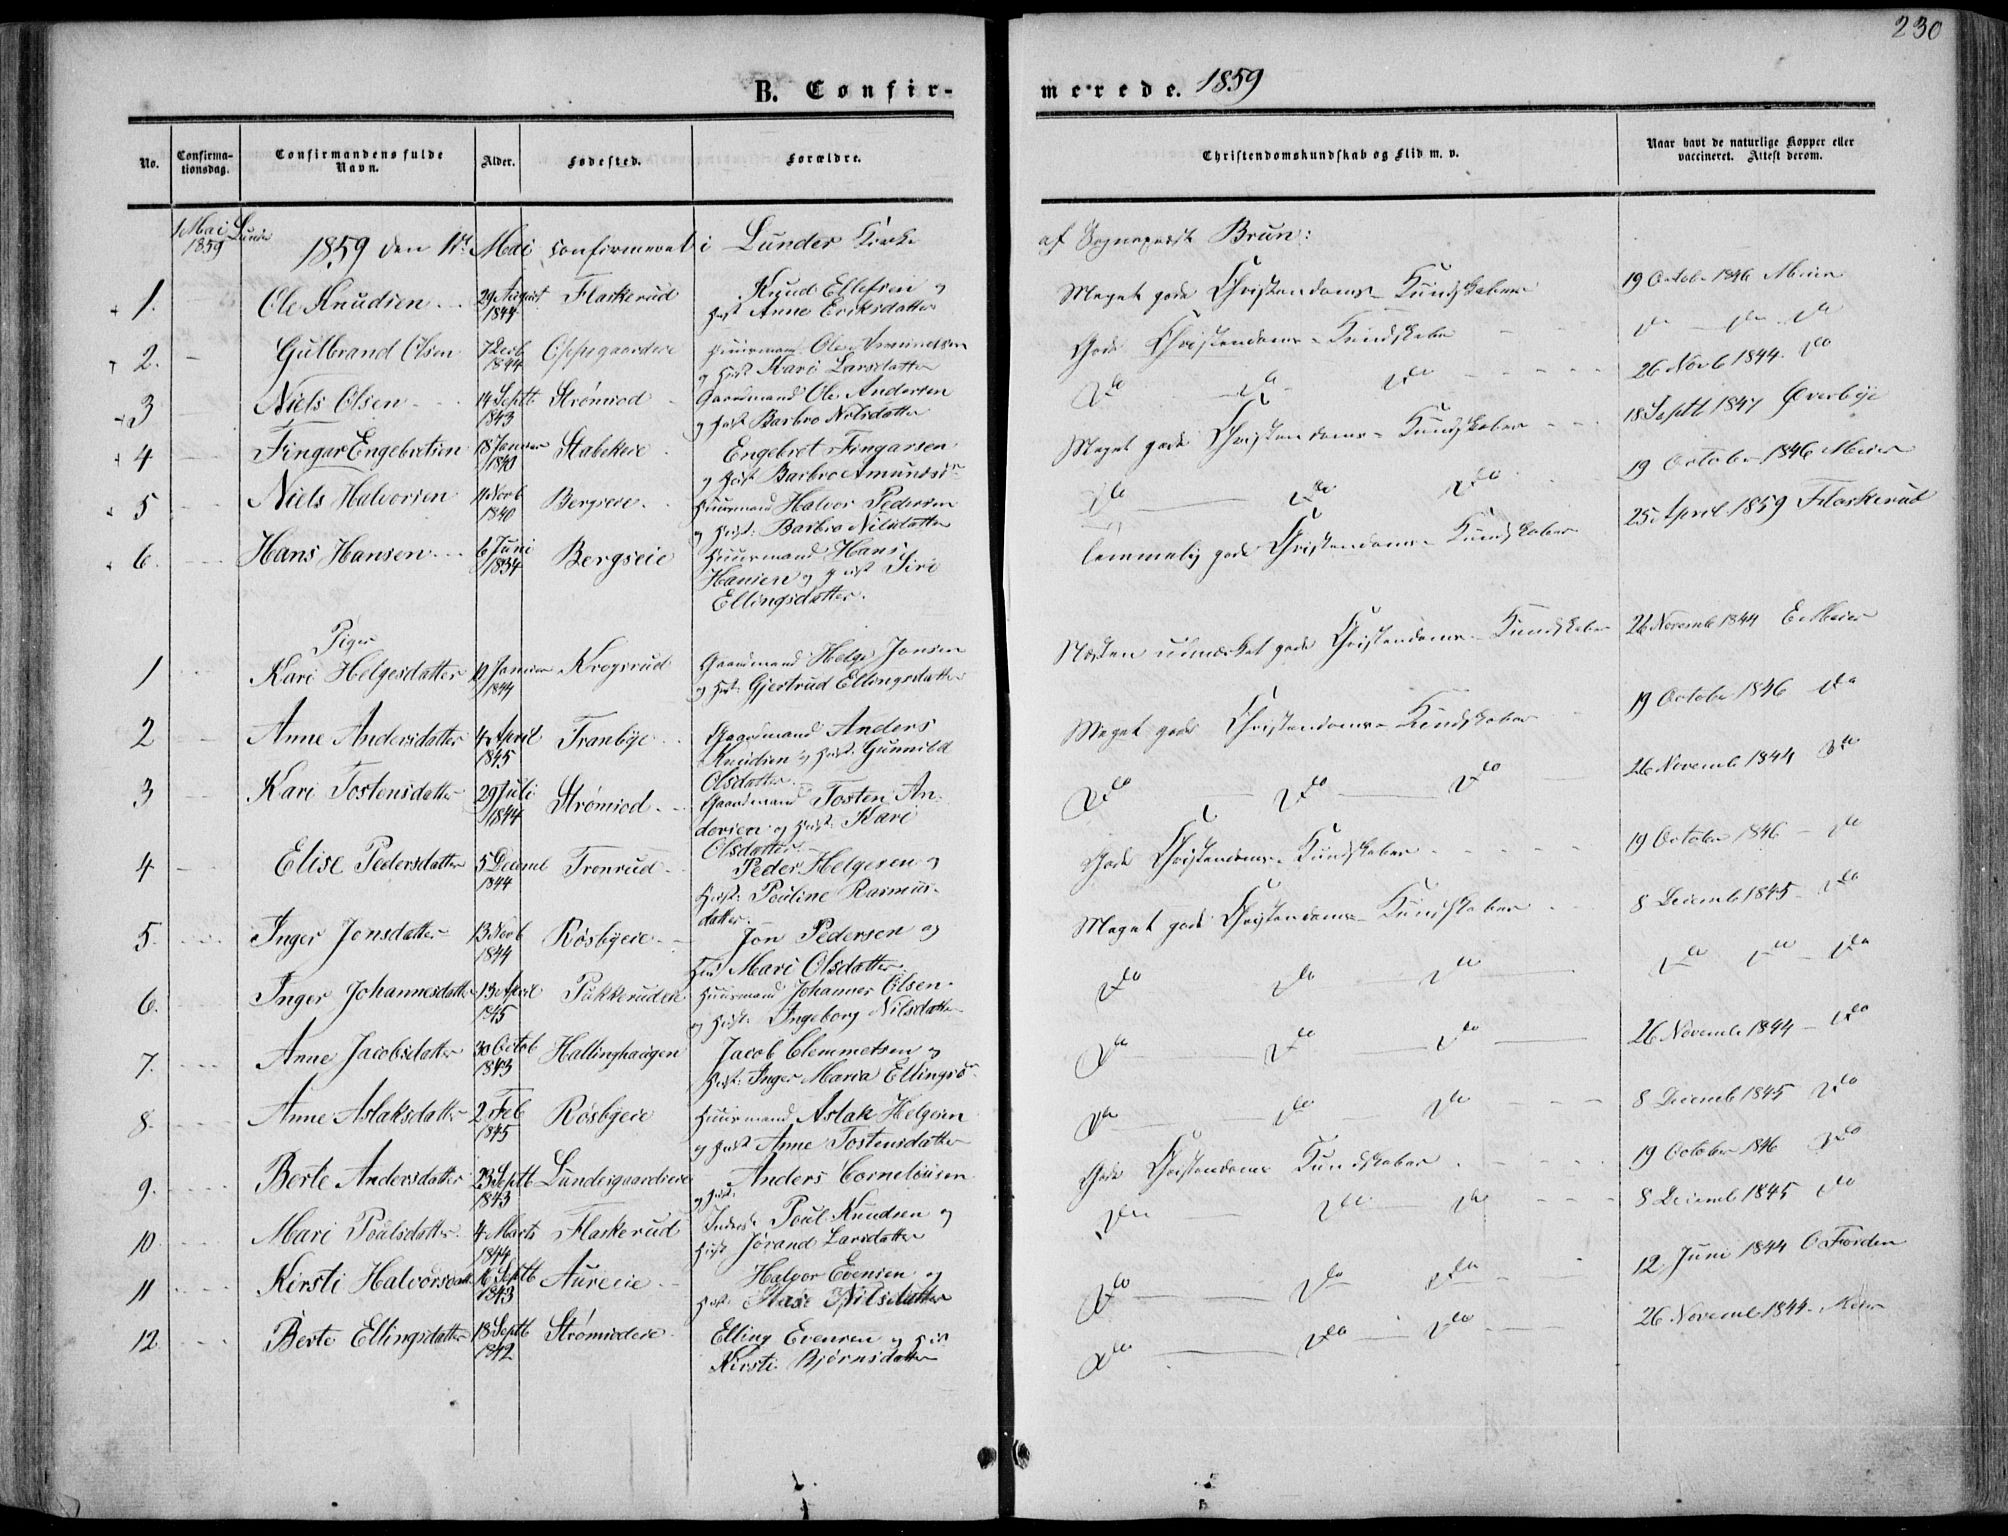 230
B. Confir-
merede. 1859
No.
Confirma-
tionsdag.
Confirmandens fulde
Navn.
Alder.
Fødested.
Forældre.
Christendomskundskab og Flid m. v.
Naar havt de naturlige Kopper eller
vaccineret. Attest derom.
1 Mai
1859
Lunde
1859 den 1ste Mai confirmeret i Lunder Kirke
af Sognepræst Brun:
1. Ole Knudsen 29 August 1844 Flaskerud Knud Ellefsen og
Hust Anne Eriksdatter
Meget gode Christendoms-Kundskaber 19 October 1846 Meier
2. Gulbrand Olsen 1844 Huusmand Ole Amundsen
og Hust Kari Larsdatter
Gode Christendoms-Kundskaber do do do
3 Niels Olsen 14 Septb 1843 Strømsod Gaardmand Ole Andersen
og Hust Barbro Nilsdatter
do do do 26 Novb 1844 do
4 Fingar Engebretsen 18 Januar Stabekeie Engebret Fingarsen
og Hust Barbro Amundsdr
Meget gode Christendoms-Kundskaber 18 Septb 1847 Øverbye
5 Niels Halvorsen 11 Novb 1840 Bergseie Huusmand Halvor Pedersen
og Hust: Barbro Nilsdatter
do do do 19 October 1846 Meier
6. Hans Hansen 6 Juni 1834 Bergseie Huusmand Hans
Hansen og Hust Siri
Ellingsdatter.
temmelig gode Christendoms-Kundskaber 25 April 1859 Flaskerud
Piger
1 Kari Helgesdatter 12 Januar 1844 Krogsrud Gaardmand Helge Jonsen
og Hust: Gjertrud Ellingsdatter
Næsten udmærket gode Christendoms-Kundskaber 26 Novemb 1844 E. Meier
2 Anne Andersdatter 4 April 1845 Tranbye Anders
Knudsen og Hust: Gunnild
Olsdatter
Meget gode Christendoms-Kundskaber 19 October 1846 do
3 Kari Tostensdatter 29 Juli 1844 Strømsod Gaardmand Tosten An-
dersen og Hust: Kari
Olsdatter
do do do 26 Novemb 1844 do
4 Elise Pedersdatter 5 Decemb 1844 Tronrud Peder Helgesen og
Hust: Pauline Rasmus-
datter.
Gode Christendoms-Kundskaber 19 October 1846 do
5. Inger Jonsdatter 13 Novb 1844 Røsbyeie Jon Pedersen og
Hust Mari Olsdatter
Meget gode Christendoms-Kundskaber 8 Decemb 1845 do
6. Inger Johannesdatter 13 April 1845 Pukkerudeie Huusmand Johannes Olsen
og Hust: Ingeborg Nilsdatter
do do do do do do
7. Anne Jacobsdatter 30 Octob 1843 Hallinghaugen Jacob Clemmetsen og
Hust: Inger Maria Ellingsdr
do do do 26 Novemb 1844 do
8. Anne Aslaksdatter 2 Feb 1845 Røsbyeie Huusmand Aslak Helgesen
og Hust Anne Tostensdatter
do do do 8 Decemb 1845 do
9. Berte Andersdatter 23 Septb 1843 Lundergaardseie Anders Corneliusen
og Hust:
Gode Christendoms Kundskaber 19 October 1846 do
10. Mari Poulsdatter 4 Marts 1844 Flaskerud Inderst Poul Knudsen og
Hust Jørand Larsdatter
do do do 8 Decemb 1845 do
11 Kirsti Halvorsdatt 16 Septb 1843 Aureeie Halvor Evensen og
Hust: Nilsdatter
do do do 12 Juni 1844 O Færden
12 Berte Ellingsdatter 18 Septb 1842 Strømsodeie Elling Evensen og Hust
Kirsti Bjørnsdatter
do do do 26 Novemb 1844 Meier